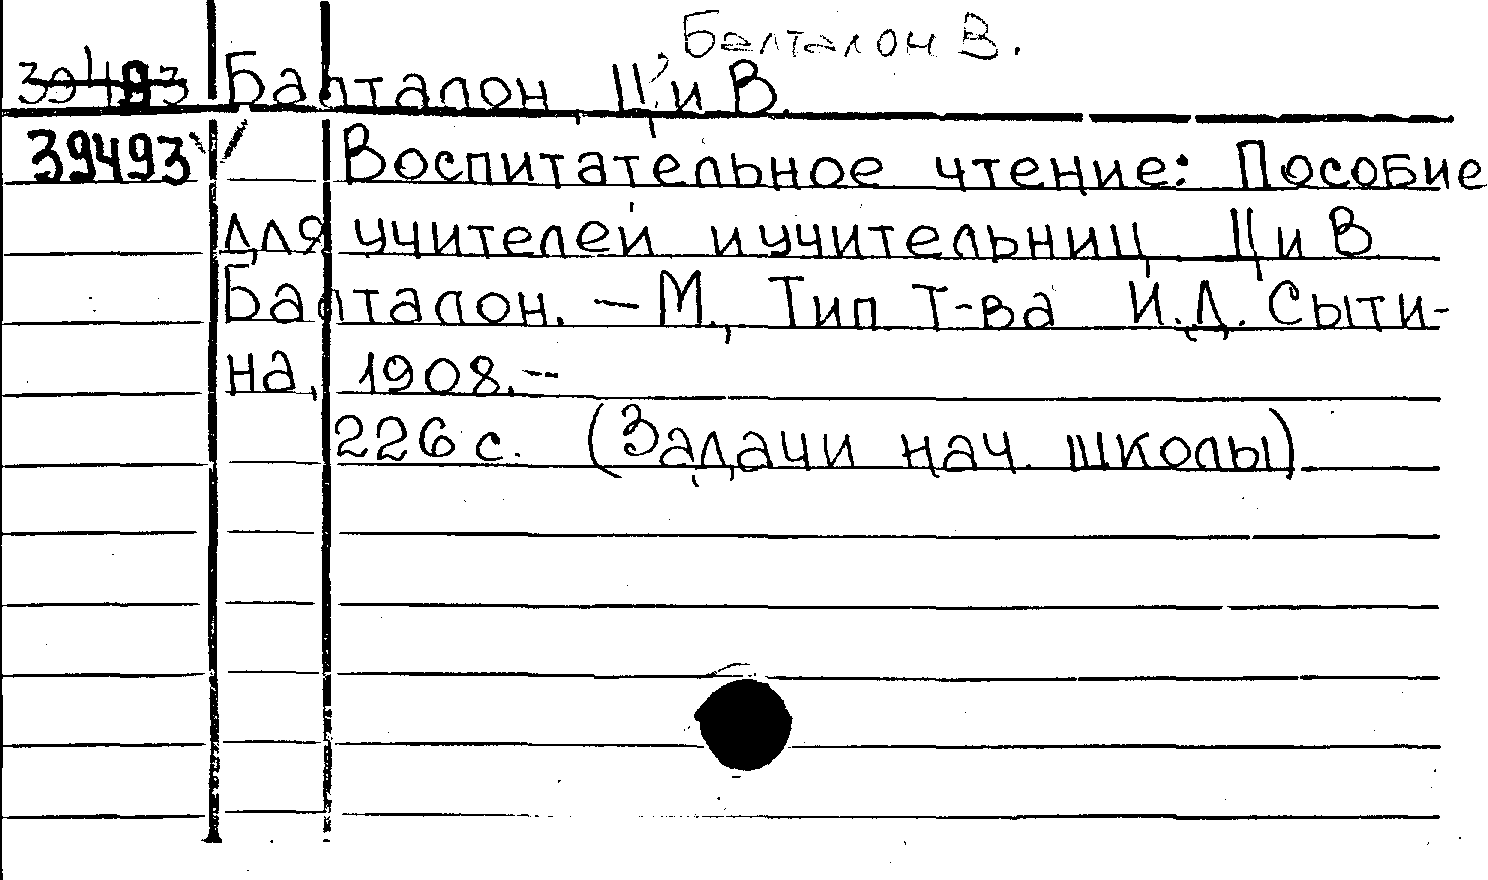 , Балталон В.
39493 Балталон, Ц. и В.
39493 Воспитательное чтение: Пособие
для учителей и учительниц Ц и В
Балталон. — М., Тип Т-ва И.Д. Сыти-
на, 1908.-
226 с. (Задачи нач. школы)